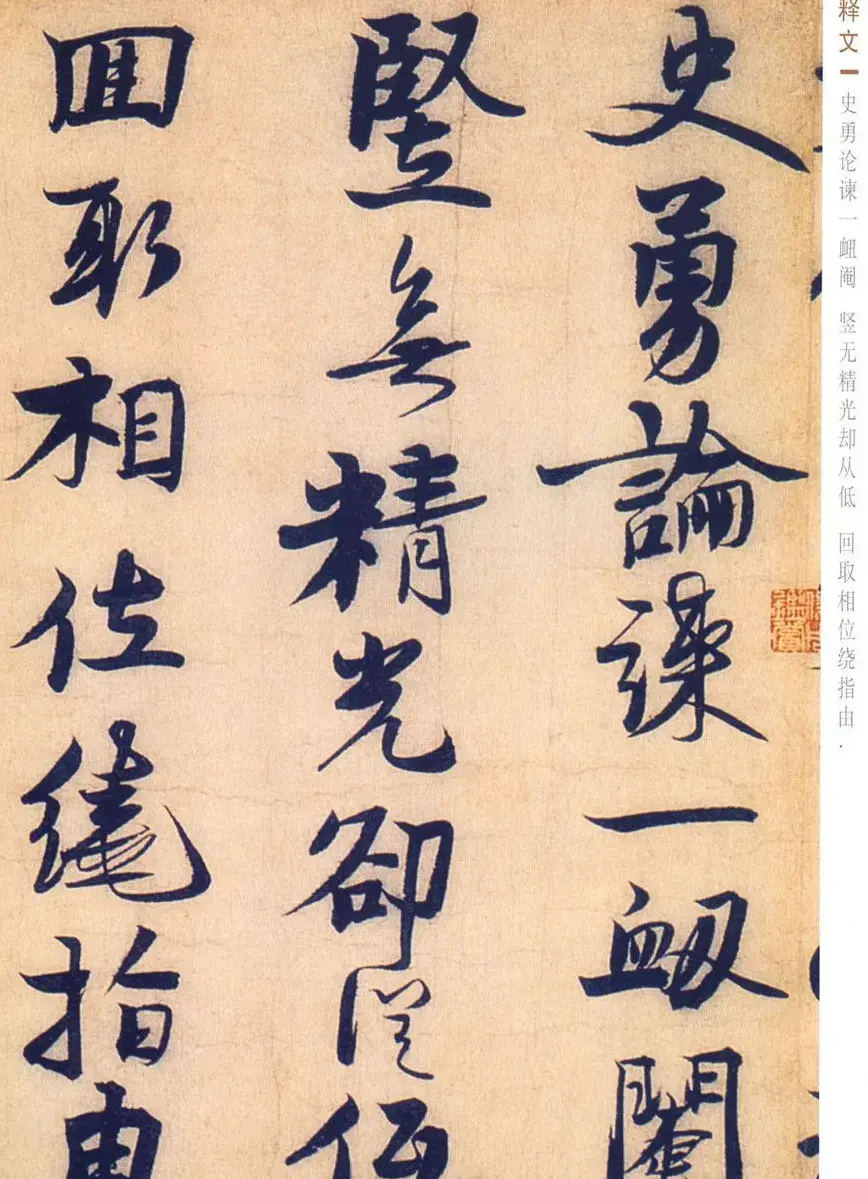 释文 史勇论谏一衄阉 竖无精光却从低 回取相位绕指由.
史勇論諫一衄閹
豎無精光卻從低
囬取相位繞指由